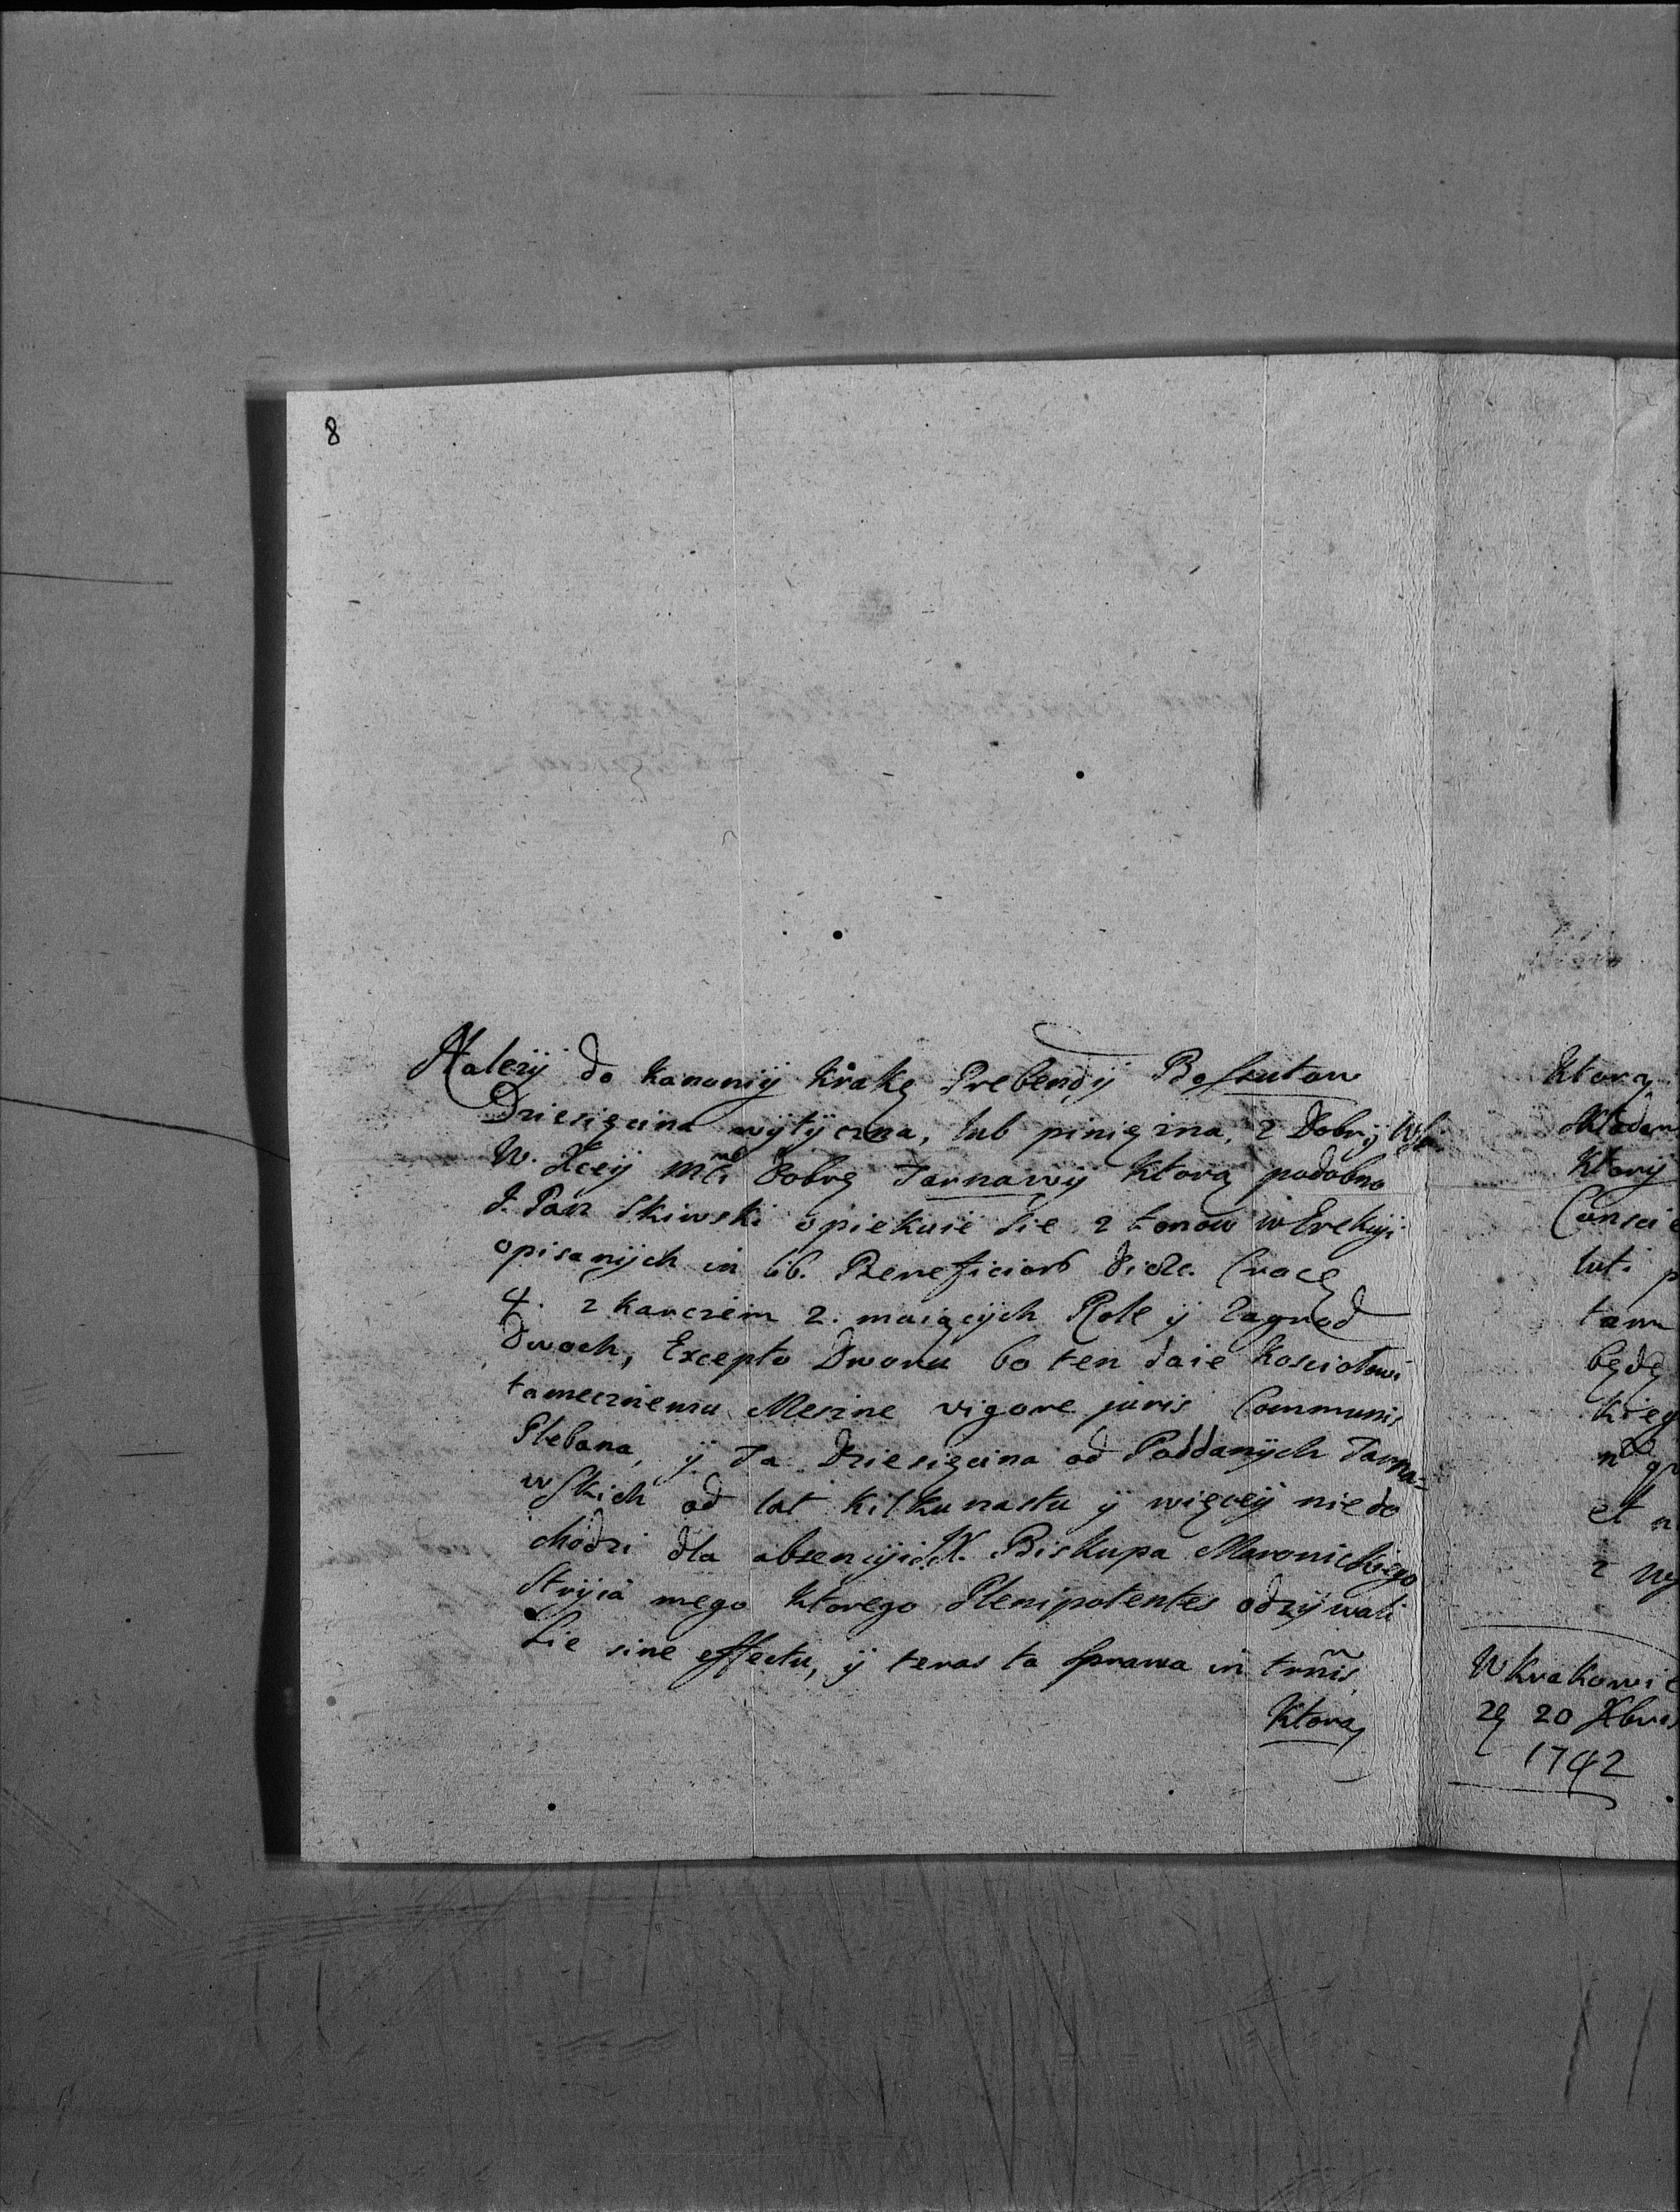 8
Należÿ do kanoniÿ krakę Prebendÿ Bossutow
Dziesięcina wÿtÿczna, lub pinięzna, z Dobrÿ
W. Xcey Mci Dobrę Tarnawÿ ktorą podobno
J. Pan Skiwski opiekuie sie z łanow w Erekÿi
opisanÿch in lib. Beneficiorũ Diæc. Crace
4. z karczem 2. maiącÿch Role ÿ Zagrod
Dwoch, Excepto Dworu bo ten daie kosciołowi
tamecznemu Meszne vigore juris Communis
Plebana, ÿ Ta Dziesięcina od Poddanÿch Tarna-
wskich od lat kilkunastu ÿ więceÿ niedo
chodzi dla absencÿi X. Biskupa Maronickiego
Strÿia mego ktorego Plenipotentes odzÿwali
Sie sine effectu, ÿ teras ta sprawa in trñis,
Ktorą
Ktorą
ktorÿ
luti p
tam
będę
kieg
et n
z
W krakowie
20 Xbris
1742